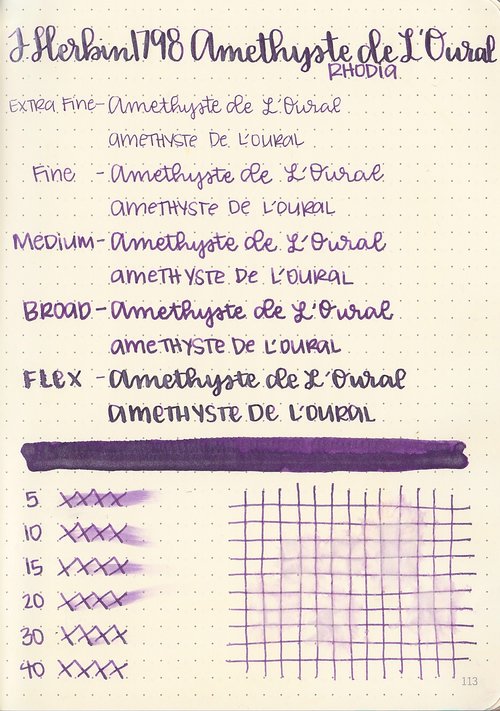 J. Herbin 1798 Amethyste de L'Oural
RHODIA
EXTRA Fine - Amethyste de L'Oural
AMETHYSTE DE L'OURAL
Fine - Amethyste de L'Oural
AMETHYSTE DE L'OURAL
MEDIUM - Amethyste de L'Oural
AMETHYSTE DE L'OURAL
BROAD - Amethyste de L'Oural
AMETHYSTE DE L'OURAL
FLEX - Amethyste de L'Oural
AMETHYSTE DE L'OURAL
5 XXXX
10 XXXX
15 XXXX
20 XXXX
30 XXXX
40 XXXX
113